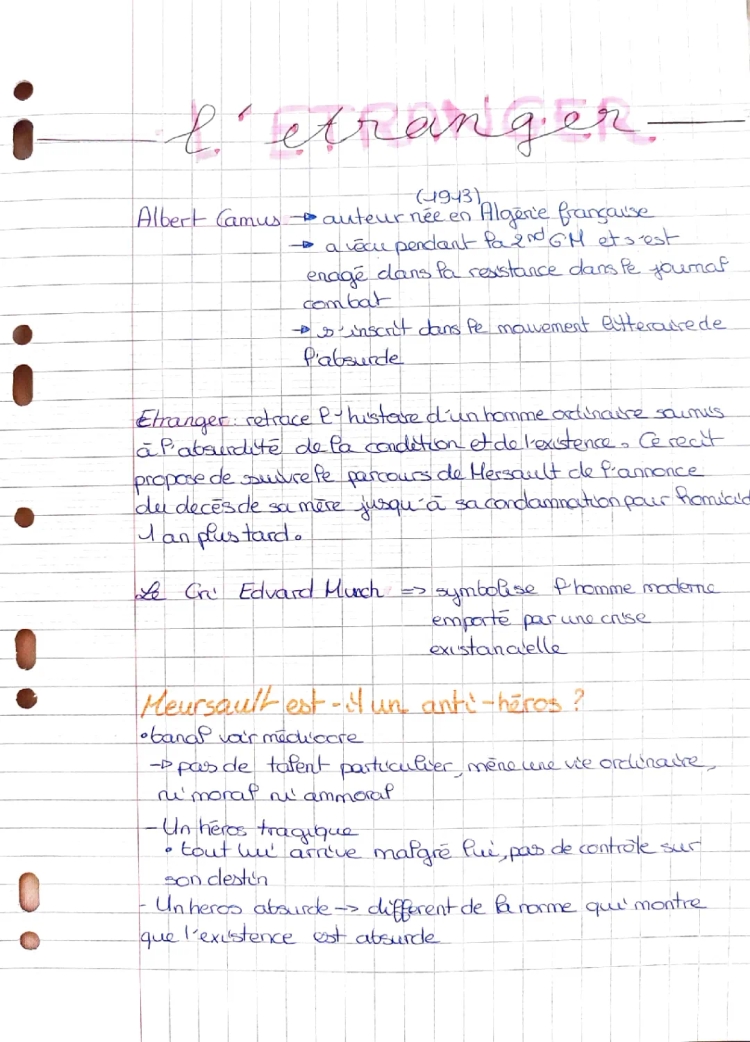 L'ETRANGER
l'etranger
(1913)
Albert Camus → auteur née en Algérie française
→ a vécu pendant la 2nd GM et s'est
enagé dans la resistance dans le journal
combat
→ s'inscrit dans le mouvement litteraire de
l'absurde
Etranger : retrace l'histoire d'un homme ordinaire soumis
à l'absurdité de la condition et de l'existence. Ce recit
propose de suivre le parcours de Mersault de l'annonce
du decés de sa mère jusqu'à sa condamnation pour homicid
1 an plus tard.
Le Cri Edvard Munch => symbolise l'homme moderne
emporté par une crise
existancielle
Meursault est-il un anti-héros ?
• banal voir médiocre
→ pas de talent particulier, mène une vie ordinaire,
ni moral ni ammoral
- Un héros tragique
• tout lui arrive malgré lui, pas de contrôle sur
son destin
- Un heros absurde -> different de la norme qui montre
que l'existence est absurde